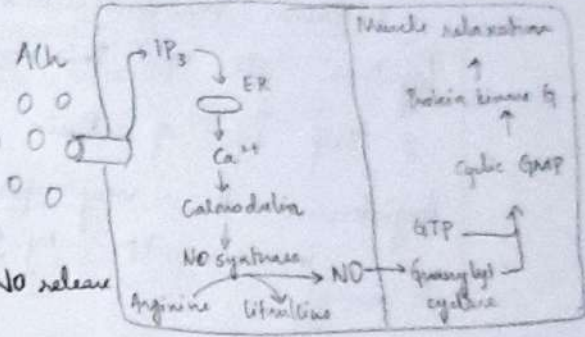 ACh
IP₃
ER
Ca²⁺
Calmodulin
NO synthase
Arginine
Citrulline
NO
NO release
Muscle relaxation
Protein kinase G
Cyclic GMP
GTP
Guanylyl
cyclase